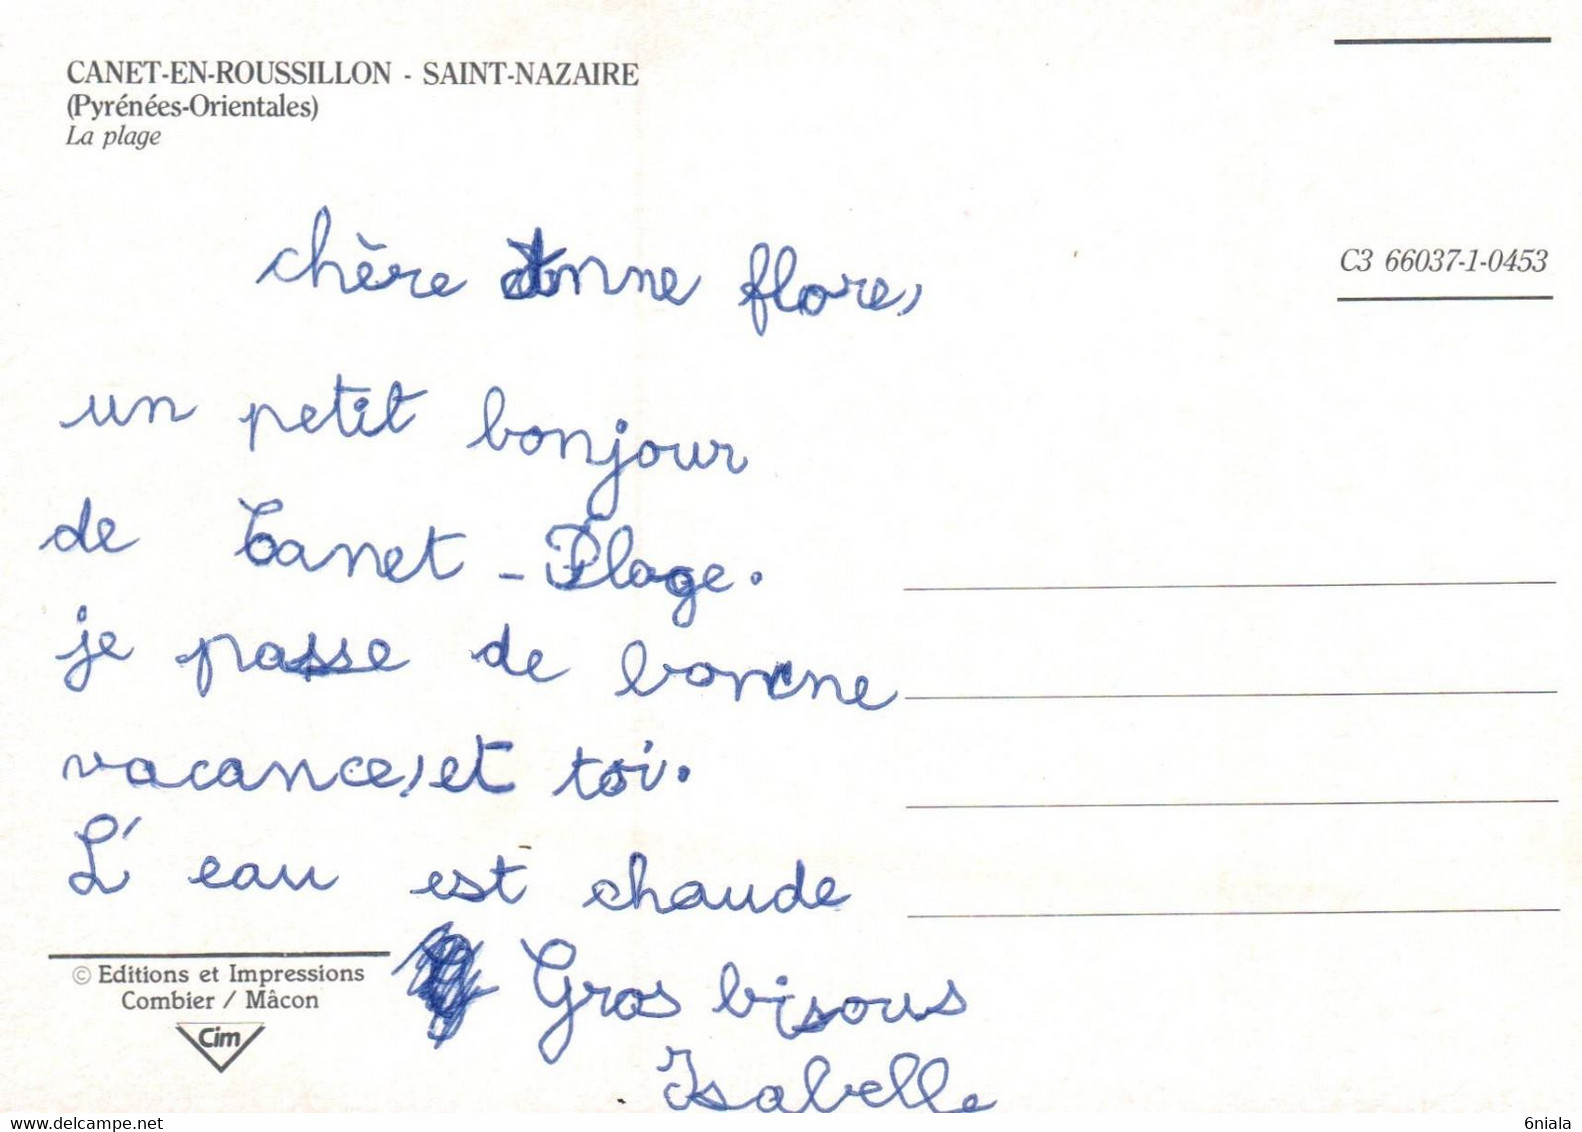 CANET-EN-ROUSSILLON - SAINT-NAZAIRE
(Pyrénées-Orientales)
La plage
C3 66037-1-0453
chère Anne flore,
un petit bonjour
de Canet - Plage.
je passe de bonne
vacance, et toi.
L' eau est chaude
Gros bisous
Isabelle
© Editions et Impressions
Combier / Mâcon
Cim
www.delcampe.net
6niala